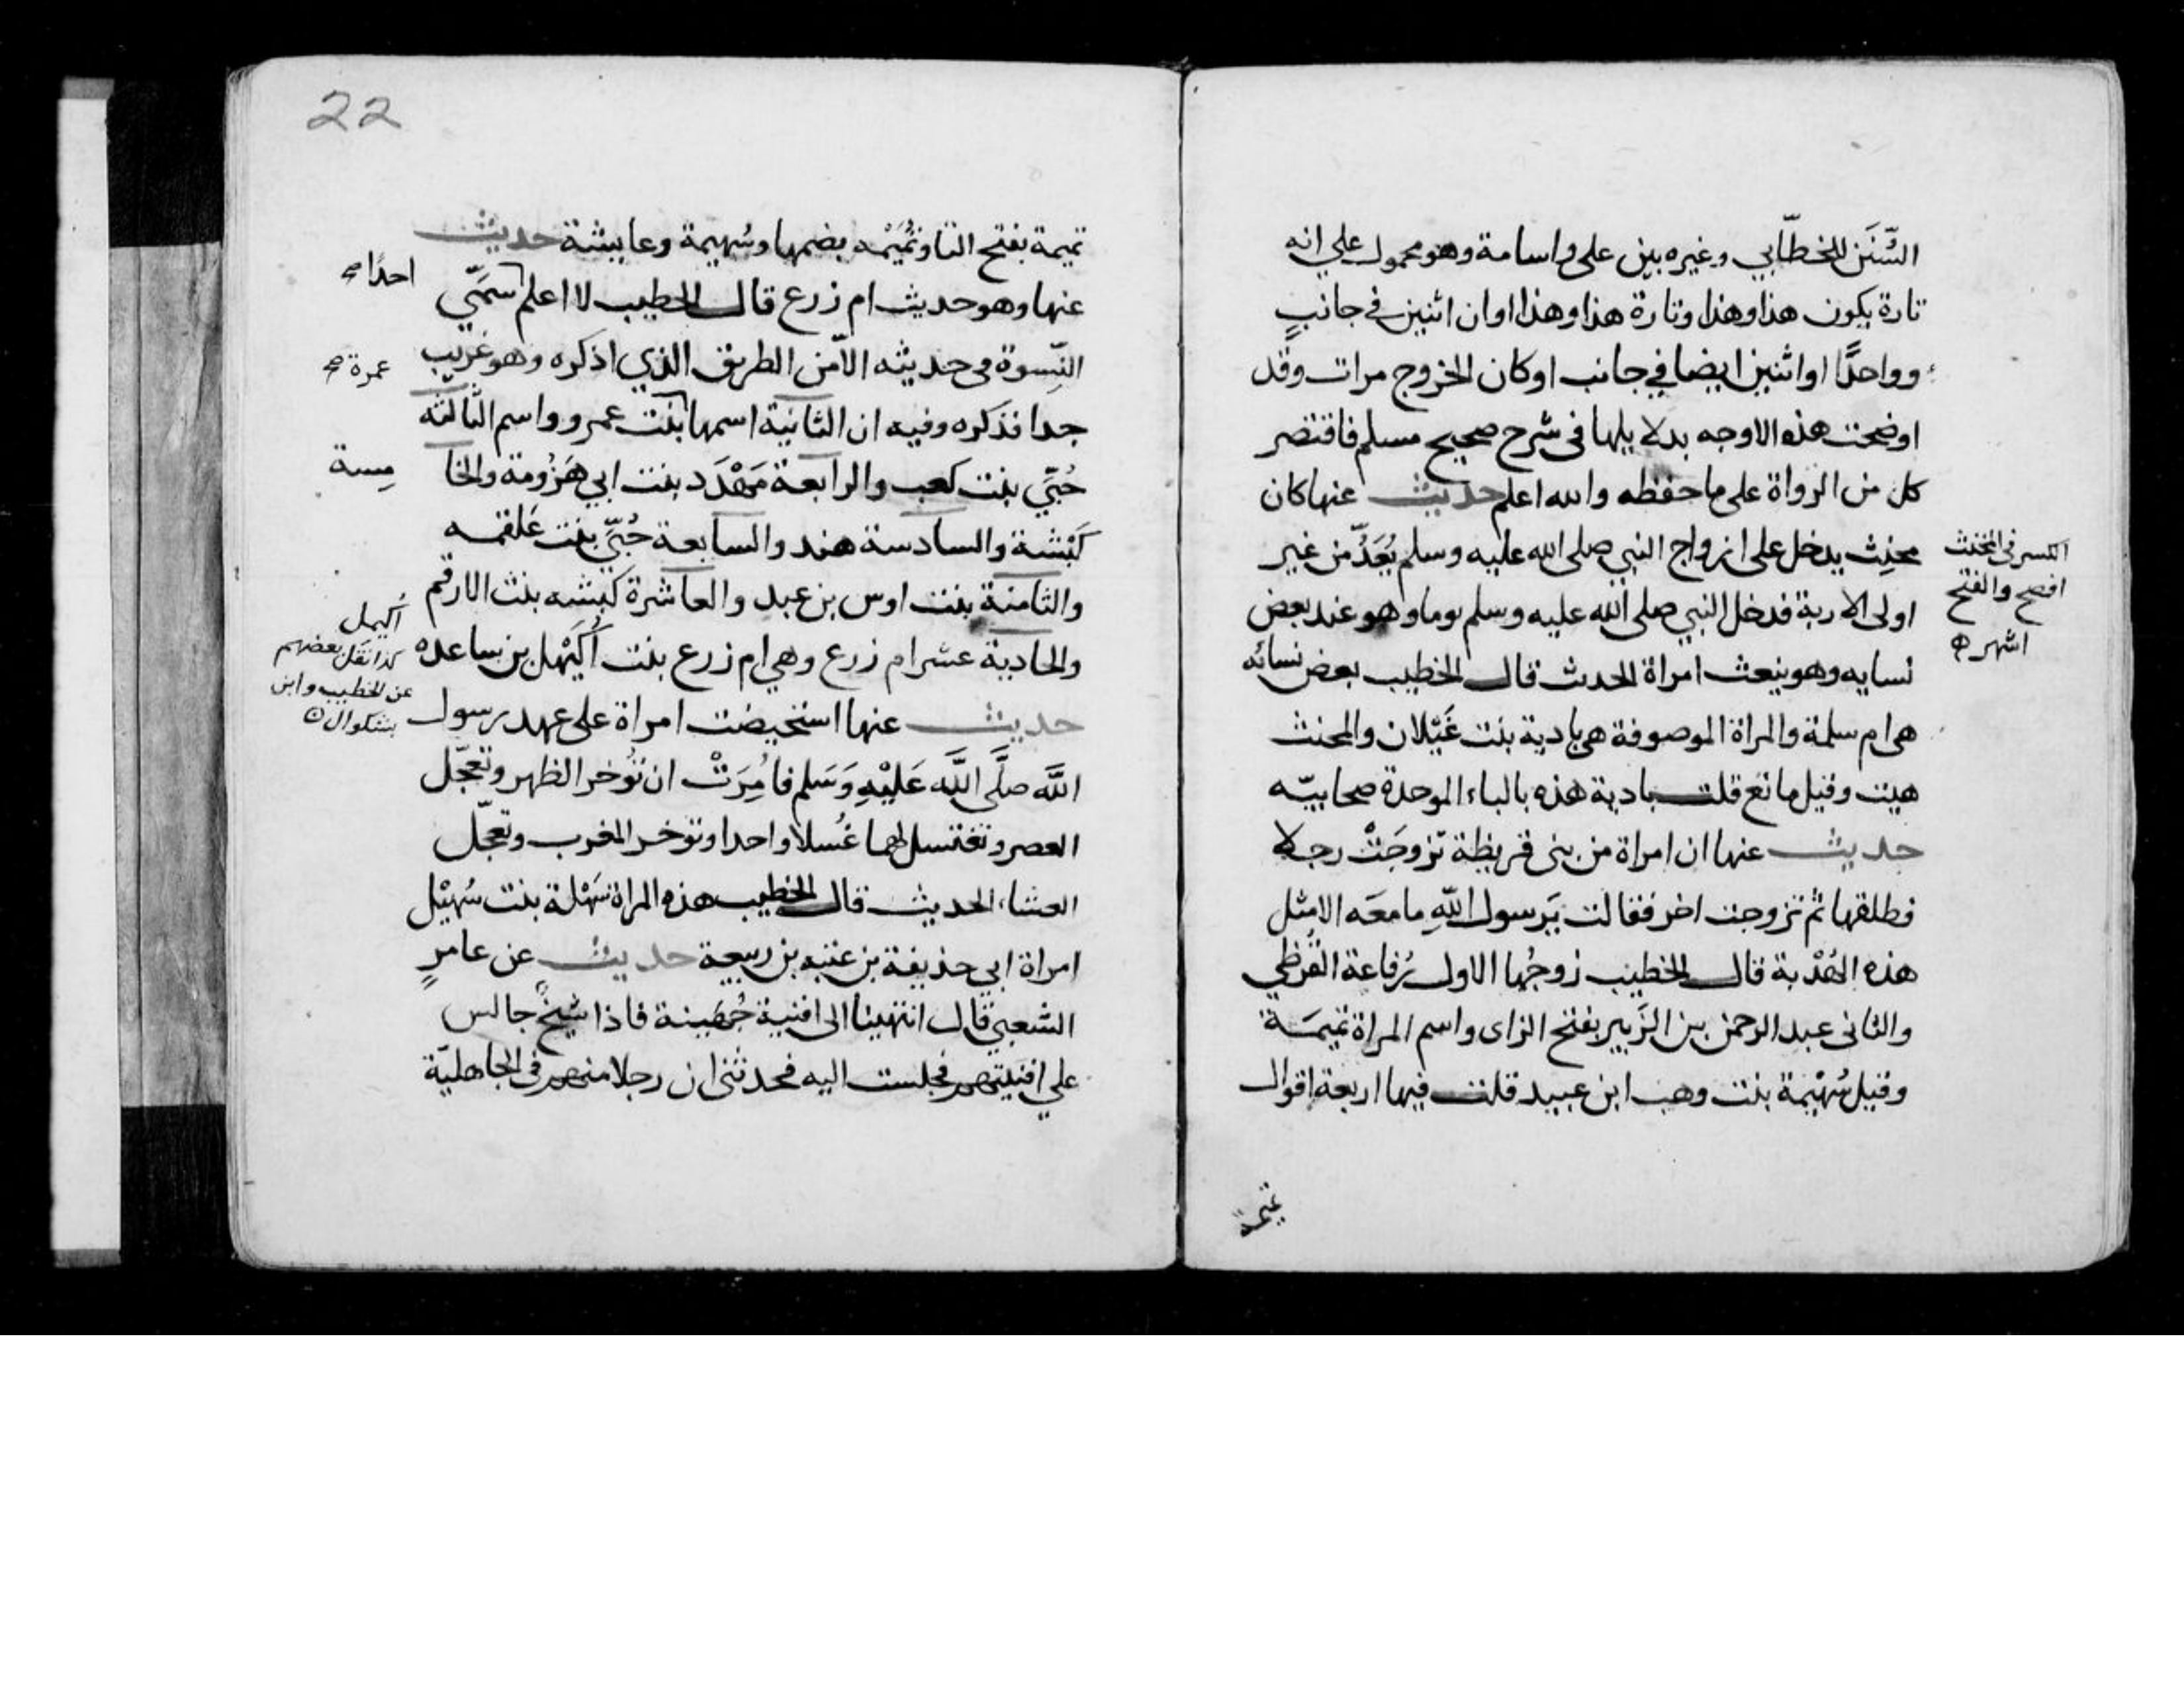 السُّنَن للخطّابي وغيره بين على واسامة وهو محمول على انه
تارة يكون هذا وهذا وتارة هذا وهذا اوان اثنين في جانبٍ
وواحدًا او اثنين ايضا في جانب او كان الخروج مرات وقد
اوضحت هذه الاوجه بدلايلها فى شرح صحيح مسلم فاقتصر
كل من الرواة على ما حفظه والله اعلم حديث عنها كان
مخنِث يدخل على ازواج النبي صلى الله عليه وسلم يُعَدُّ من غير
اولى الاربة فدخل النبي صلى الله عليه وسلم يوما وهو عند بعض
نسايه وهو ينعت امراة الحدث قال الخطيب بعض نسائه
هى ام سلمة والمراة الموصوفة هى بادية بنت غَيْلان والمخنث
هيت وقيل مانع قلت بادية هذه بالباء الموحدة صحابيّه
حديث عنها ان امراة من بنى قريظة تزوجَتْ رجلا
فطلقها ثم تزوجت اخر فقالت يَرسول اللّهِ ما معَه الا مِثل
هذه الهُدْبة قال الخطيب زوجُها الاول رُفاعة القُرظي
والثانى عبد الرحمن بن الزَبير بفتح الزاى واسم المراة تميمَة
وقيل سُهَيْمة بنت وهب ابن عبيد قلت فيها اربعة اقوال
الكسر فى المخنث
افصح والفتح
اشهر
تميمة
22
تميمة بفتح التا وتُمَيْمه بضمها وسُهيمة وعايشة حديث
عنها وهو حديث ام زرع قال الخطيب لا اعلم سَمَّي
النِّسوة فى حديثه الا من الطريق الذي اذكره وهو غريب
جدا فذكره وفيه ان الثانية اسمها بنت عمرو واسم الثالثه
حُبَّي بنت كعب والرابعة مَهْدَد بنت ابي هَزُومة والخا
كَبْشة والسادسة هند والسابعة حُبَّي بنت عَلقمه
والثامنة بنت اوس بن عبد والعاشرة كبشه بنت الارقم
والحادية عشر ام زرع وهي ام زرع بنت اُكَيْهل بن ساعده
حديث عنها استحيضت امراة على عهد رسول
اللَّه صلَّى اللَّه عَليْهِ وَسَلم فامُِرَتْ ان تُوخر الظهر وتعجّل
العصر وتغتسل لهما غُسلا واحدا وتوخر المغرب وتعجّل
العشاء الحديث قال الخطيب هذه المراة سَهْلة بنت سُهيْل
امراة ابي حذيفة بن عتبه بن ربيعة حديث عن عامرٍ
الشعبي قال انتهينا الى افنية جُهَينة فاذا شيخٌ جالس
علي افنيتهم فجلست اليه فحدثنى ان رجلا منهم فى الجاهليّة
احدًا
عمرة
مِسة
اُكيمل
كذا نقل بعضهم
عن الخطيب وابن
بشكوال